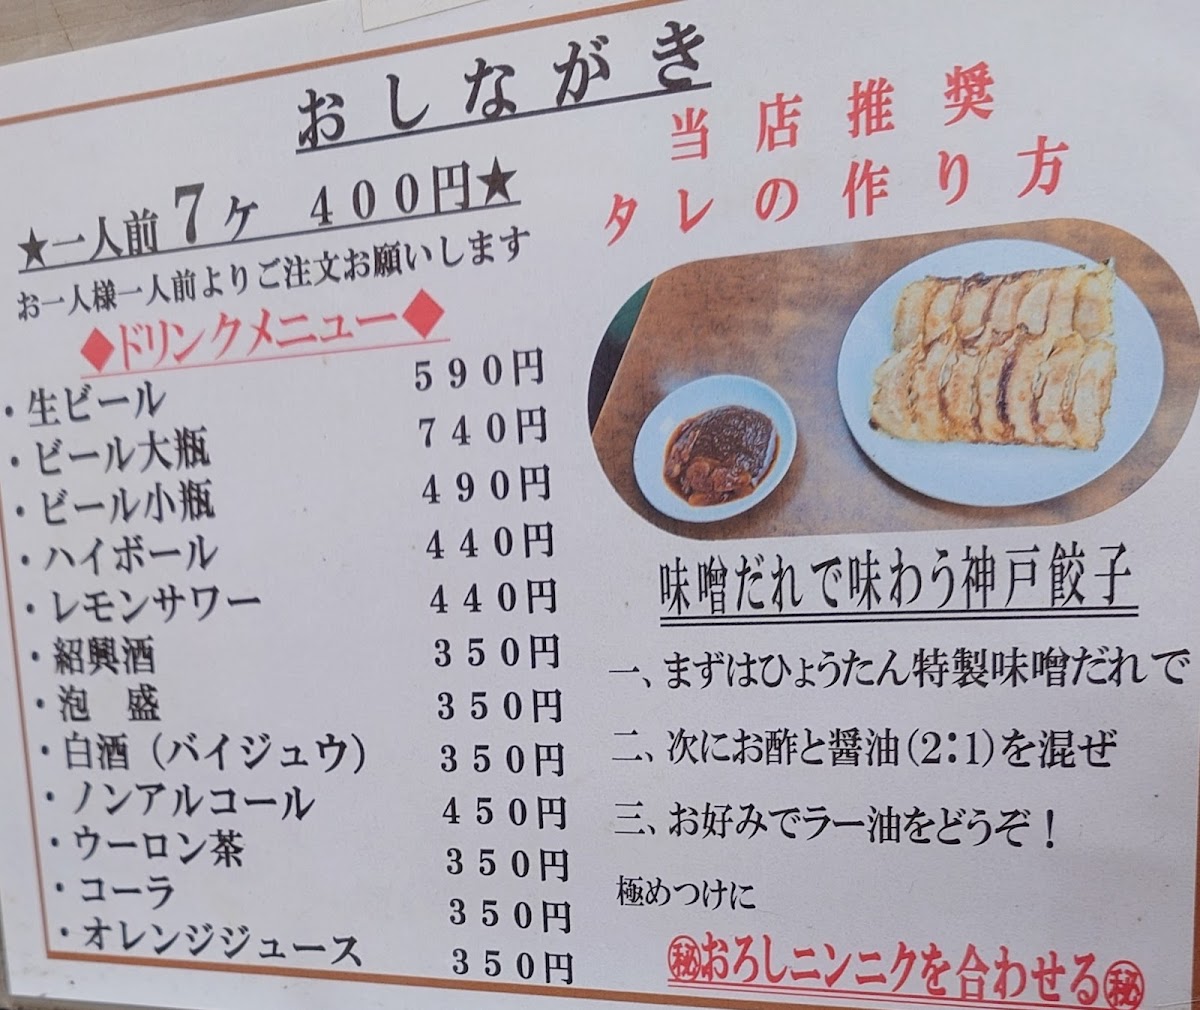 おしながき
★一人前7ヶ 400円★
お一人様一人前よりご注文お願いします
◆ドリンクメニュー◆
・生ビール 590円
・ビール大瓶 740円
・ビール小瓶 490円
・ハイボール 440円
・レモンサワー 440円
・紹興酒 350円
・泡 盛 350円
・白酒（バイジュウ） 350円
・ノンアルコール 450円
・ウーロン茶 350円
・コーラ 350円
・オレンジジュース 350円
当店推奨
タレの作り方
味噌だれで味わう神戸餃子
一、まずはひょうたん特製味噌だれで
二、次にお酢と醤油(2:1)を混ぜ
三、お好みでラー油をどうぞ！
極めつけに
㊙おろしニンニクを合わせる㊙